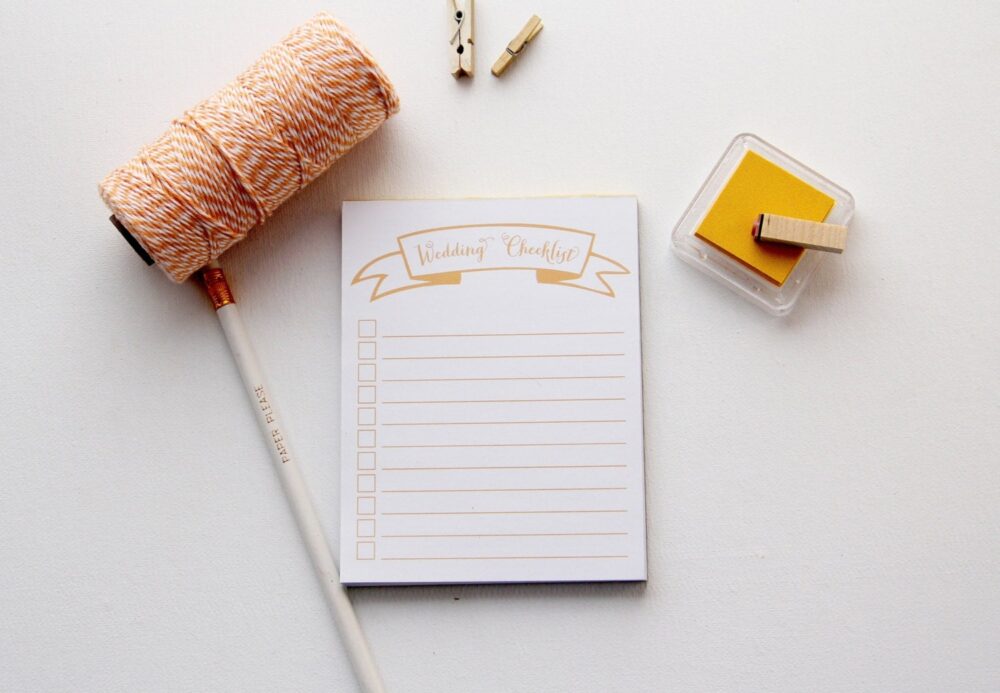 Wedding Checklist
PAPER PLEASE